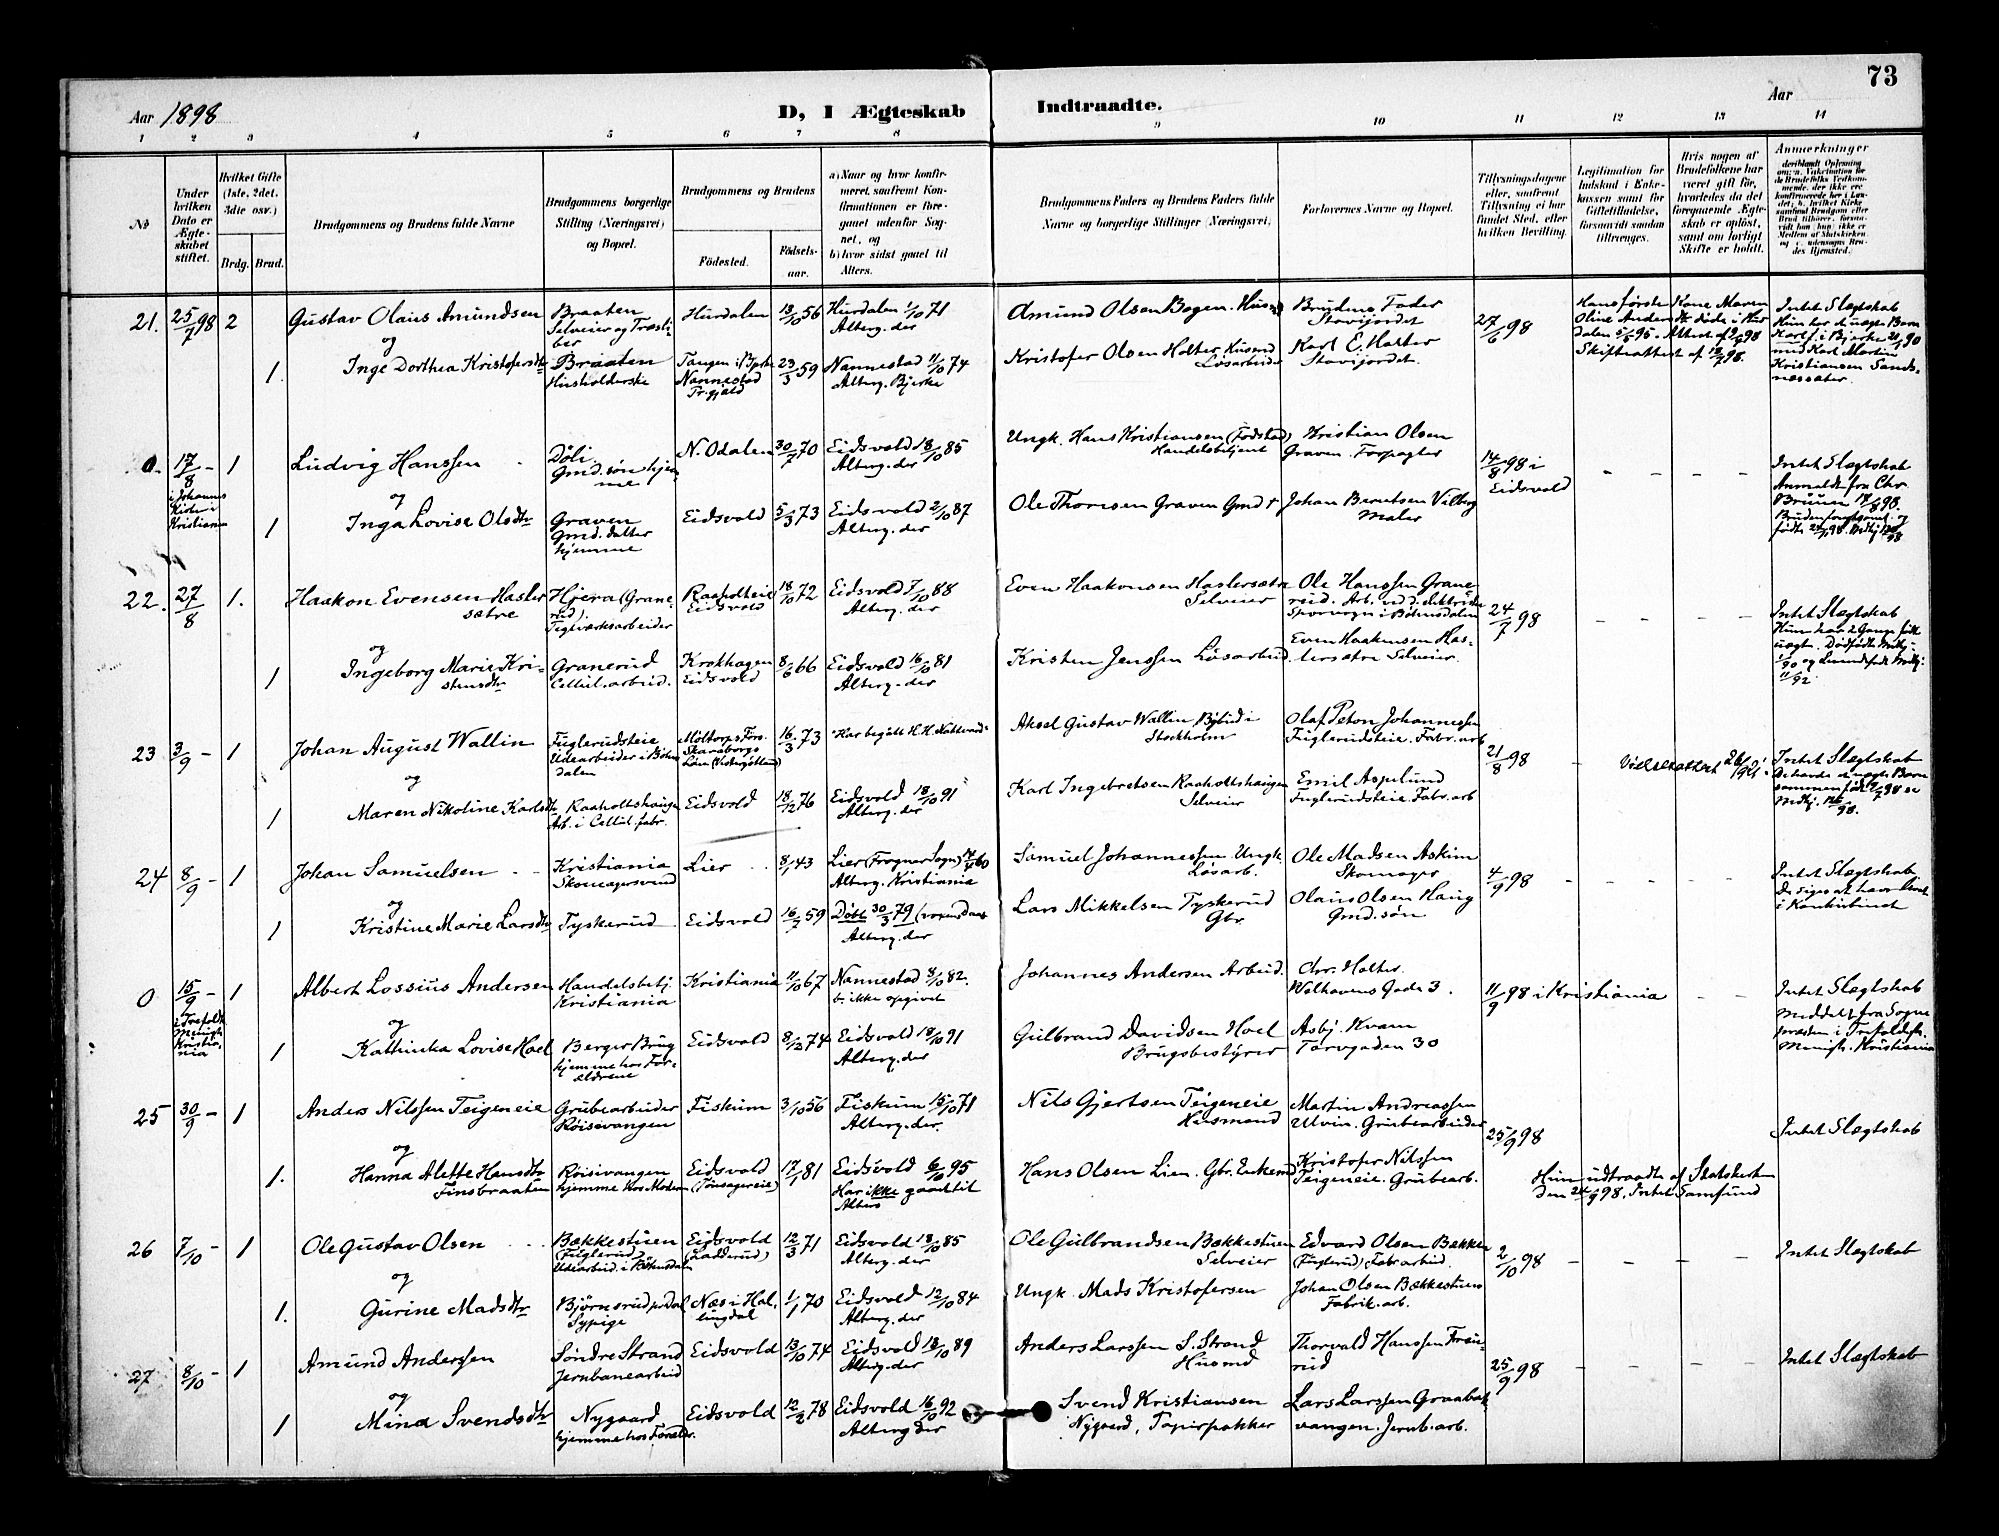 73
Aar 1898
D, I Ægteskab Indtraadte.
Aar
1 2 3 4 5 6 7 8 9 10 11 12 13 14
No
Under hvilken Dato er Ægteskabet stiftet.
Hvilket Gifte (1ste, 2det, 3die osv.)
Brdg. Brud.
Brudgommens og Brudens fulde Navne
Brudgommens borgerlige Stilling (Næringsvei) og Bopæl.
Brudgommens og Brudens
Födested. Födselsaar.
a) Naar og hvor konfirmeret, saafremt Konfirmationen er foregaaet udenfor Sognet, og
b) hvor sidst gaaet til Alters.
Brudgommens Faders og Brudens Faders fulde Navne og borgerlige Stillinger (Næringsvei)
Forlovernes Navne og Bopæl.
Tillysningsdagene eller, saafremt Tillysning ei har fundet Sted, efter hvilken Bevilling.
Legitimation for Indskud i Enkekassen samt for Giftetilladelse, forsaavidt saadan tiltrænges.
Hvis nogen af Brudefolkene har været gift för, hvorledes da det foregaaende Ægteskab er oplöst, samt om lovligt Skifte er holdt.
Anmerkninger
21. 25/7 98 2 Gustav Olaus Amundsen Braaten Selveier og Træsliber Hurdalen 13/10 56 Hurdalen 1/10 71 Alterg. der Amund Olsen Bagen. Brudens Fader Stavijordet 27/6 98 Hans første Kone Maren Oline Andersdtr døde i Hurdalen 5/5 95. Intet Slægtskab
og
1. Inge Dorthea Kristofersdtr Braaten Husholderske Tangen i Bjerke Nannestad Prgjæld 23/3 59 Nannestad 11/10 74 Alterg. Bjerke Kristofer Olsen Holter Løsarbeider Karl E. Holter Stavijordet. Skifteattest af 98. Kristiansen Sandsnessæter.
0. 17/8 - 1 Ludvig Hanssen Döli. Gmd. søn hjemme N. Odalen 30/7 70 Eidsvold 18/10 85 Alterg. der Ungk. Hans Kristiansen (Fodstad) Handelsbetjent Kristian Olsen Graven. Forpagter 14/8 98 i Eidsvold - - - Intet Slægtskab Anmeldt fra Chr.
i Johannes Kirke i Kristiania
og
1 Inga Lovise Olsdtr Graven Gmd. datter hjemme Eidsvold 5/3 73 Eidsvold 2/10 87 Alterg. der Ole Thoresen Graven Gmd † Johan Berntsen Vilberg Maler
22. 27/8 1. Haakon Evensen Haslersætre Hjera (Granerud) Teglværksarbeider Raaholteie Eidsvold 18/10 72 Eidsvold 7/10 88 Alterg. der Even Haakonsen Haslersætre Selveier Ole Hanssen Granerud. Arb. ved d. elektriske Sporvogn i Bøhnsdalen 24/7 98 - - - Intet Slægtskab
og
1 Ingeborg Marie Kristensdtr Granerud Cellul. arbeid. Krokhagen Eidsvold 8/6 66 Eidsvold 16/10 81 Alterg. der Kristen Jenssen Løsarbeid. Even Haakensen Haslersætre Selveier.
23 3/9 - 1 Johan August Wallin Fuglerudsteie Udearbeider i Bøhnsdalen Skaraborgs Län (Vestergötland) 16/3 73 Har begått H. H. Nattvard Aksel Gustav Wallin Bybud i Stockholm Olaf Peton Johannessen Fuglerudsteie. Fabr. arb 21/8 98 - Intet Slægtskab
og
1 Maren Nikoline Karlsdtr Raaholtshaugen Arb. i Cellul. fabr. Eidsvold 18/12 76 Eidsvold 18/10 91 Alterg. der Karl Ingebretsen Raaholtshaugen Selveier Emil Asplund Fuglerudsteie Fabr. arb
24 8/9 - 1 Johan Samuelsen Kristiania Skomagersvend Lier 8/1 43 Lier (Frogner Sogn) 60 Alterg. Kristiania Samuel Johannessen Ungk. Løsarb. Ole Madsen Askim Skomager 4/9 98 - - - - Intet Slægtskab De siges at have levet i Konkubinat
og
1 Kristine Marie Larsdtr Tyskerud Eidsvold 16/7 59 Døbt 30/3 79 Alterg. der Lars Mikkelsen Tyskerud Gbr. Olaus Olsen Haug Gmd. søn
0 15/9 - 1 Albert Lossius Andersen Handelsbetj. Kristiania Kristiania 11/10 67 Nannestad 8/10 82. b. ikke opgivet Johannes Andersen Arbeid. Chr. Holter. Welhavens Gade 3. 11/9 98 i Kristiania - - Intet Slægtskab Meddelt fra Sognepræsten i Trefoldigh. Menigh. Kristiania
i Trefold. Menigh. Kristiania
og
1 Kathinka Lovise Hoel Berger Brug hjemme hos Forældrene Eidsvold 8/2 74 Eidsvold 18/10 91 Alterg. der Gulbrand Davidsen Hoel Brugsbestyrer Asbj. Kvam Torvgaden 30
25 30/9 - 1 Anders Nilssen Teigeneie Grubearbeider Röisivangen Fiskum 3/10 56 Fiskum 15/10 71 Alterg. der. Nils Gjertsen Teigeneie Husmand Martin Andreassen Ulvin. Grubearbeider 25/9 98 Intet Slægtskab
og
1. Hanna Alette Hansdtr Finsbraaten Röisivangen hjemme hos Moderen Eidsvold (Tønsagereie) 17/1 81 Eidsvold 6/10 95 Har ikke gaaet til Alters Hans Olsen Lien. Gbr. Enkemd Kristofer Nilssen Teigeneie. Grubearb. Hun udtraadte af Statskirken den 24/9 98. Intet Samfund
26 7/10 - 1 Ole Gustav Olsen Bækkestuen (Fuglerud) Udearbeid. i Bøhnsdalen Eidsvold (Ladderud) 12/3 71 Eidsvold 18/10 85 Alterg. der Ole Gulbrandsen Bækkestuen Selveier Edvard Olsen Bække (Fuglerud) Fabr arbeid. 2/10 98 - - - - Intet Slægtskab
og
1. Gurine Madsdtr Bjørnsrud Sypige Næs i Hallingdal 1/1 70 Eidsvold 12/10 84 Alterg. der Ungk. Mads Kristofersen Johan Olsen Bækkestuen Fabrik. arb.
27 8/10 - 1 Amund Anderssen Søndre Strand Jernbanearbeid Eidsvold 13/10 74 Eidsvold 13/10 89 Alterg. der Anders Larssen S. Strand Husmd Thorvald Hanssen 25/9 98 - - - - Intet Slægtskab
og
1 Mina Svendsdtr Nygaard hjemme hos Foræld. Eidsvold 12/2 78 Eidsvold 16/10 92 Alterg der Svend Kristiansen Nygaard, Papirpakker Lars Larssen Graabækvangen. Jernb. arb.